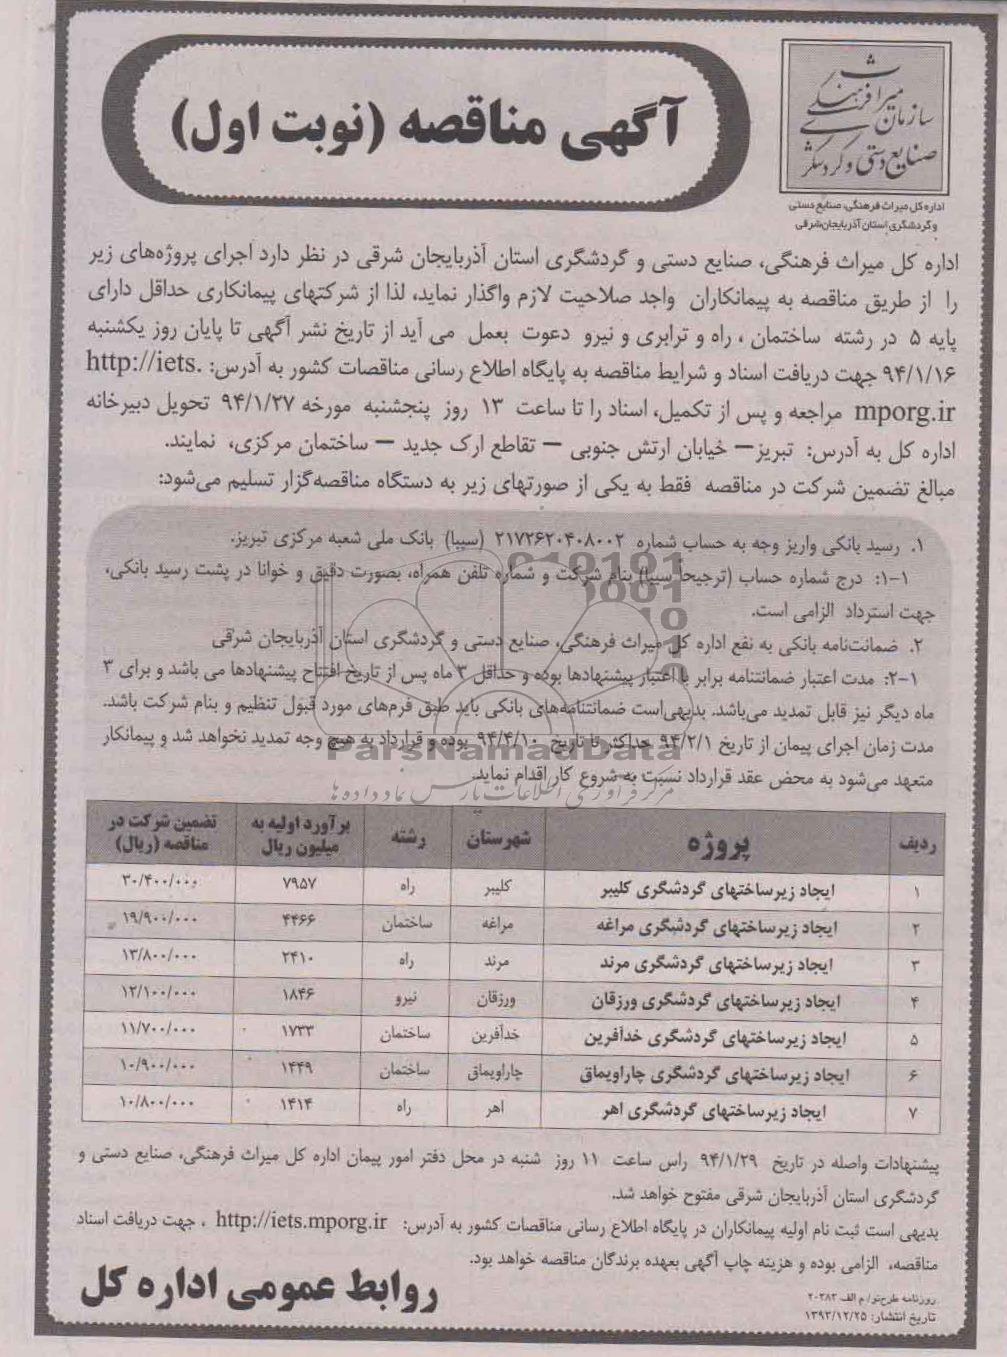 سازمان میراث فرهنگی
صنایع دستی و گردشگری
اداره کل میراث فرهنگی، صنایع دستی
و گردشگری استان آذربایجان شرقی
آگهی مناقصه (نوبت اول)
اداره کل میراث فرهنگی، صنایع دستی و گردشگری استان آذربایجان شرقی در نظر دارد اجرای پروژه‌های زیر
را از طریق مناقصه به پیمانکاران واجد صلاحیت لازم واگذار نماید، لذا از شرکتهای پیمانکاری حداقل دارای
پایه ۵ در رشته ساختمان ، راه و ترابری و نیرو دعوت بعمل می آید از تاریخ نشر آگهی تا پایان روز یکشنبه
۹۴/۱/۱۶ جهت دریافت اسناد و شرایط مناقصه به پایگاه اطلاع رسانی مناقصات کشور به آدرس: http://iets.
mporg.ir مراجعه و پس از تکمیل، اسناد را تا ساعت ۱۳ روز پنجشنبه مورخه ۹۴/۱/۲۷ تحویل دبیرخانه
اداره کل به آدرس: تبریز– خیابان ارتش جنوبی – تقاطع ارک جدید – ساختمان مرکزی، نمایند.
مبالغ تضمین شرکت در مناقصه فقط به یکی از صورتهای زیر به دستگاه مناقصه‌گزار تسلیم می‌شود:
۱. رسید بانکی واریز وجه به حساب شماره ۲۱۷۲۶۲۰۴۰۸۰۰۲ (سیبا) بانک ملی شعبه مرکزی تبریز.
۱-۱: درج شماره حساب (ترجیحاً سیبا) بنام شرکت و شماره تلفن همراه، بصورت دقیق و خوانا در پشت رسید بانکی،
جهت استرداد الزامی است.
۲. ضمانت‌نامه بانکی به نفع اداره کل میراث فرهنگی، صنایع دستی و گردشگری استان آذربایجان شرقی
۲-۱: مدت اعتبار ضمانتنامه برابر با اعتبار پیشنهادها بوده و حداقل ۳ ماه پس از تاریخ افتتاح پیشنهادها می باشد و برای ۳
ماه دیگر نیز قابل تمدید می‌باشد. بدیهی‌است ضمانتنامه‌های بانکی باید طبق فرم‌های مورد قبول تنظیم و بنام شرکت باشد.
مدت زمان اجرای پیمان از تاریخ ۹۴/۲/۱ حداکثر تا تاریخ ۹۴/۴/۱۰ بوده و قرارداد به هیچ وجه تمدید نخواهد شد و پیمانکار
متعهد می‌شود به محض عقد قرارداد نسبت به شروع کار اقدام نماید.
ParsNamadData
مرکز فرآوری اطلاعات پارس نماد داده ها
ردیف پروژه شهرستان رشته برآورد اولیه به میلیون ریال تضمین شرکت در مناقصه (ریال)
۱ ایجاد زیرساختهای گردشگری کلیبر کلیبر راه ۷۹۵۷ ۳۰/۴۰۰/۰۰۰
۲ ایجاد زیرساختهای گردشگری مراغه مراغه ساختمان ۴۴۶۶ ۱۹/۹۰۰/۰۰۰
۳ ایجاد زیرساختهای گردشگری مرند مرند راه ۲۴۱۰ ۱۳/۸۰۰/۰۰۰
۴ ایجاد زیرساختهای گردشگری ورزقان ورزقان نیرو ۱۸۴۶ ۱۲/۱۰۰/۰۰۰
۵ ایجاد زیرساختهای گردشگری خدآفرین خدآفرین ساختمان ۱۷۳۳ ۱۱/۷۰۰/۰۰۰
۶ ایجاد زیرساختهای گردشگری چاراویماق چاراویماق ساختمان ۱۴۴۹ ۱۰/۹۰۰/۰۰۰
۷ ایجاد زیرساختهای گردشگری اهر اهر راه ۱۴۱۴ ۱۰/۸۰۰/۰۰۰
پیشنهادات واصله در تاریخ ۹۴/۱/۲۹ راس ساعت ۱۱ روز شنبه در محل دفتر امور پیمان اداره کل میراث فرهنگی، صنایع دستی و
گردشگری استان آذربایجان شرقی مفتوح خواهد شد.
بدیهی است ثبت نام اولیه پیمانکاران در پایگاه اطلاع رسانی مناقصات کشور به آدرس: http://iets.mporg.ir ، جهت دریافت اسناد
مناقصه، الزامی بوده و هزینه چاپ آگهی بعهده برندگان مناقصه خواهد بود.
روزنامه طرح‌نو/ م الف ۲۰۳۸۲
تاریخ انتشار: ۱۳۹۳/۱۲/۲۵
روابط عمومی اداره کل